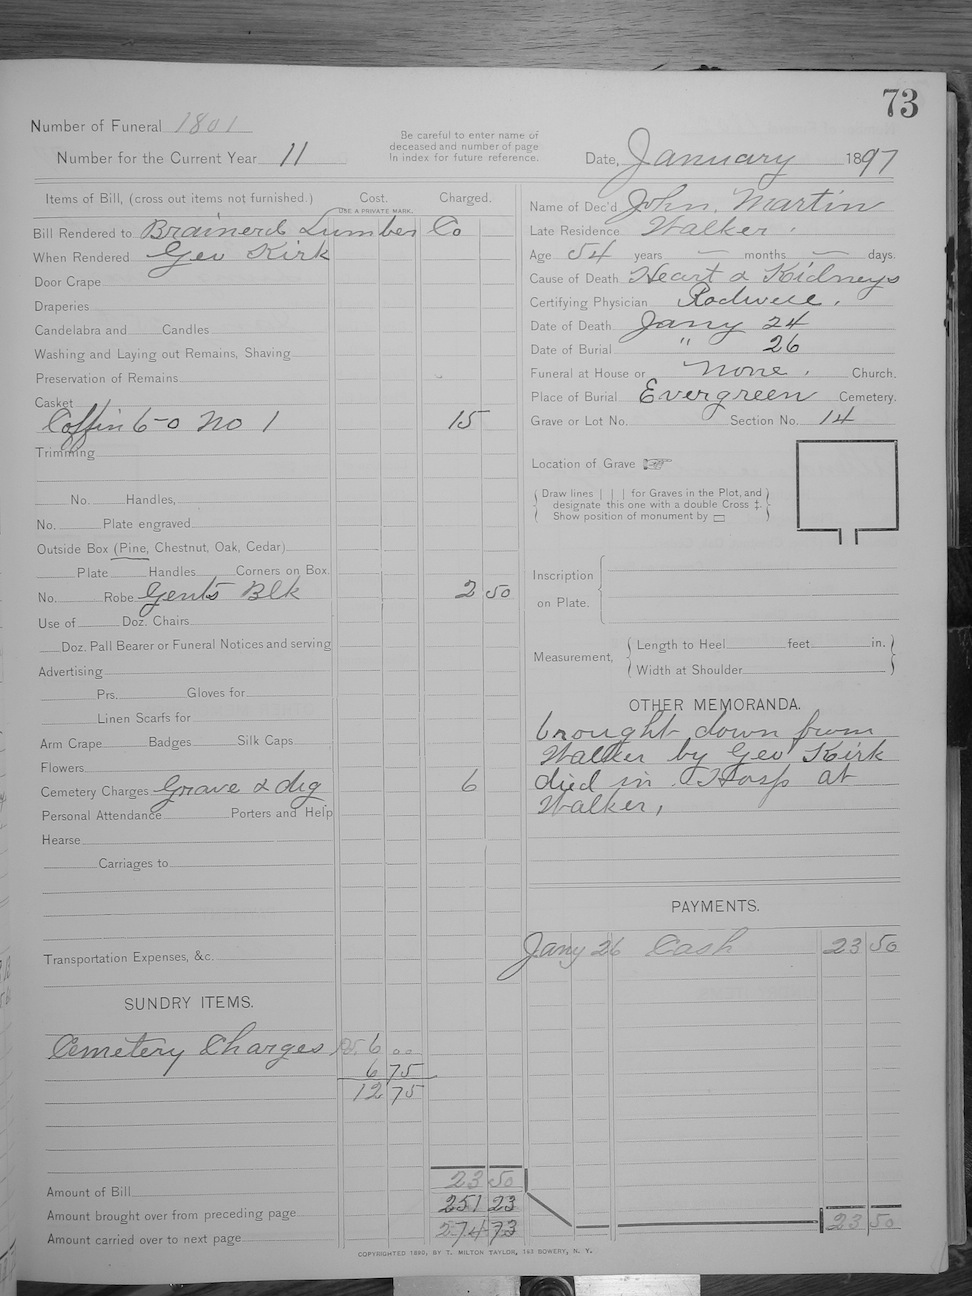 73
Number of Funeral 1801
Number for the Current Year 11
Be careful to enter name of
deceased and number of page
In index for future reference.
Date, January 1897
Items of Bill, (cross out items not furnished.) Cost. Charged.
USE A PRIVATE MARK.
Bill Rendered to Brainerd Lumber Co
When Rendered Geo Kirk
Door Crape
Draperies
Candelabra and Candles
Washing and Laying out Remains, Shaving
Preservation of Remains
Casket
Coffin 6-0 No 1 15
Trimming
No. Handles,
No. Plate engraved
Outside Box (Pine, Chestnut, Oak, Cedar)
Plate Handles Corners on Box.
No. Robe Gents Blk 2 50
Use of Doz. Chairs
Doz. Pall Bearer or Funeral Notices and serving
Advertising
Prs. Gloves for
Linen Scarfs for
Arm Crape Badges Silk Caps
Flowers
Cemetery Charges Grave & dig 6
Personal Attendance Porters and Help
Hearse
Carriages to
Transportation Expenses, &c.
SUNDRY ITEMS.
Cemetery Charges 6 00
6 75
12 75
Amount of Bill 23 50
Amount brought over from preceding page 251 23
Amount carried over to next page 274 73
Name of Dec'd John. Martin
Late Residence Walker.
Age 54 years — months — days.
Cause of Death Heart & Kidneys
Certifying Physician Rodwell.
Date of Death Jany 24
Date of Burial " 26
Funeral at House or None. Church.
Place of Burial Evergreen Cemetery.
Grave or Lot No. Section No. 14
Location of Grave
Draw lines | | | for Graves in the Plot, and
designate this one with a double Cross ‡.
Show position of monument by ▭
Inscription
on Plate.
Measurement, Length to Heel feet in.
Width at Shoulder
OTHER MEMORANDA.
brought down from
Walker by Geo Kirk
died in Hosp at
Walker,
PAYMENTS.
Jany 26 Cash 23 50
23 50
COPYRIGHTED 1890, BY T. MILTON TAYLOR, 163 BOWERY, N. Y.